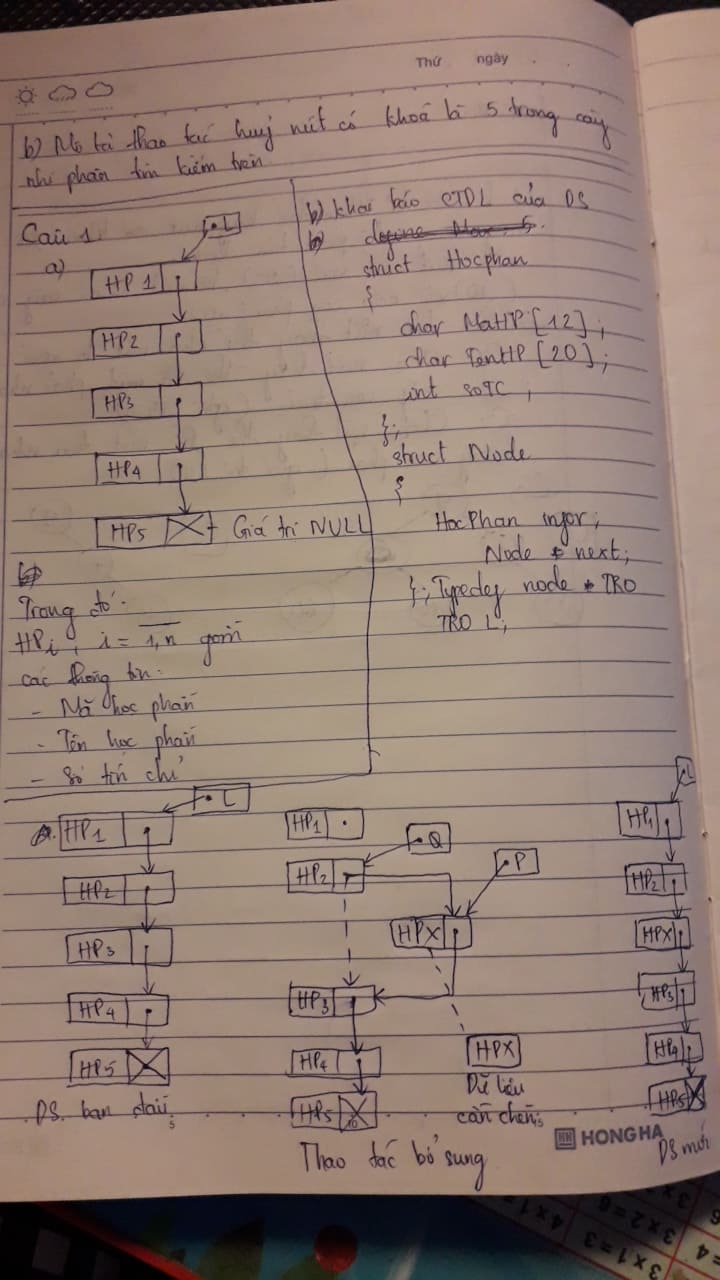 Thứ ngày
b) Mô tả thao tác huỷ nút có khoá là 5 trong cây
nhị phân tìm kiếm trên
Câu 1
a)
L
HP 1
HP2
HP3
HP4
HP5 Giá trị NULL
Trong đó:
HPi, i = 1,n gồm
các thông tin:
- Mã học phần
- Tên học phần
- Số tín chỉ
b) Khai báo CTDL của DS
struct Hocphan
{
char MaHP [12];
char TenHP [20];
int SoTC ;
};
struct Node
{
HocPhan infor;
Node * next;
}; Typedef node * TRO
TRO L;
L
HP1
HP2
HP3
HP4
HP5
DS ban đầu
HP1
Q
HP2
P
HPX
HP3
HP4
HP5
HPX
Dữ liệu
cần chèn
Thao tác bổ sung
L
HP1
HP2
HPX
HP3
HP4
HP5
DS mới
HH HONG HA
3x1=3
3x2=6
3x3
4x1=